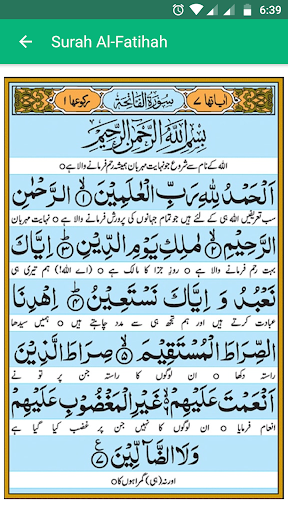 6:39
Surah Al-Fatihah
اٰیاتھا ۷ سُوْرَۃُ الْفَاتِحَۃِ رکوعھا ۱
بِسْمِ اللّٰهِ الرَّحْمٰنِ الرَّحِیْمِ
اللہ کے نام سے شروع جو نہایت مہربان ہمیشہ رحم فرمانے والا ہے o
اَلْحَمْدُ لِلّٰهِ رَبِّ الْعٰلَمِیْنَ ۙ﴿۱﴾ الرَّحْمٰنِ
سب تعریفیں اللہ ہی کے لئے ہیں جو تمام جہانوں کی پرورش فرمانے والا ہے o نہایت مہربان
الرَّحِیْمِ ۙ﴿۲﴾ مٰلِكِ یَوْمِ الدِّیْنِ ؕ﴿۳﴾ اِیَّاكَ
بہت رحم فرمانے والا ہے o روزِ جزا کا مالک ہے o (اے اللہ!) ہم تیری ہی
نَعْبُدُ وَ اِیَّاكَ نَسْتَعِیْنُ ؕ﴿۴﴾ اِهْدِنَا
عبادت کرتے ہیں اور ہم تجھ ہی سے مدد چاہتے ہیں o ہمیں سیدھا
الصِّرَاطَ الْمُسْتَقِیْمَ ۙ﴿۵﴾ صِرَاطَ الَّذِیْنَ
راستہ دکھا o ان لوگوں کا راستہ جن پر تو نے
اَنْعَمْتَ عَلَیْهِمْ ۙ﴿۶﴾ غَیْرِ الْمَغْضُوْبِ عَلَیْهِمْ
انعام فرمایا o ان لوگوں کا نہیں جن پر غضب کیا گیا ہے
وَ لَا الضَّآلِّیْنَ ﴿۷﴾ ع
اور نہ (ہی) گمراہوں کا o